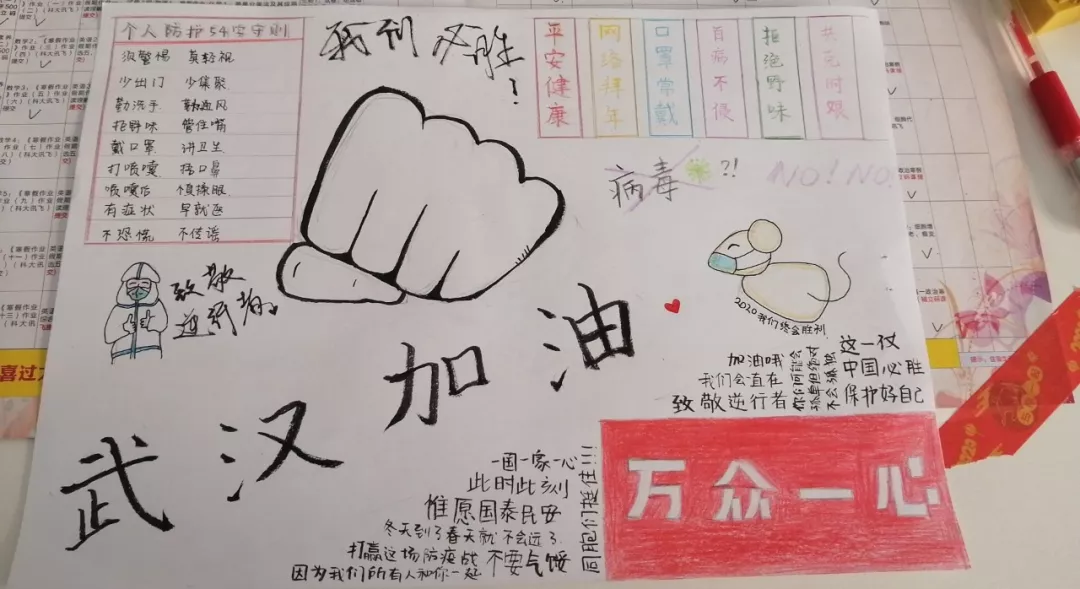 个人防护54字守则
提警惕 莫轻视
少出门 少集聚
勤洗手 勤通风
拒野味 管住嘴
戴口罩 讲卫生
打喷嚏 捂口鼻
喷嚏后 慎揉眼
有症状 早就医
不恐慌 不传谣
我们必胜!
平安健康
网络拜年
口罩常戴
百病不侵
拒绝野味
共克时艰
病毒?!
NO! NO
致敬
逆行者
2020我们终会胜利
武汉加油
加油哦
我们会直在
致敬逆行者
这一仗
中国必胜
保护好自己
一国一家一心
此时此刻
惟愿国泰民安
冬天到了春天就不会远了
打赢这场防疫战 不要气馁
因为我们所有人和你一起
同胞们挺住!!!
万众一心